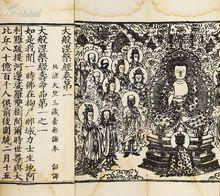 大般涅槃經卷第一
北涼天竺三藏曇無讖奉 詔譯
壽命品第一之一
如是我聞一時佛在拘尸那城力士生地阿
利羅跋提河邊娑羅雙樹間爾時世尊與大
比丘八十億百千人俱前後圍繞二月十五